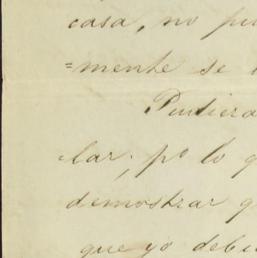 casa, no pu
=mente se
Pudiera
lar; pº lo q
demostrar q
que yo debi